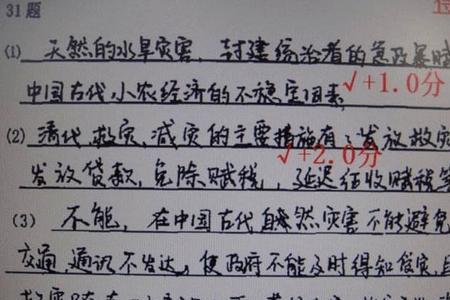 31题
(1) 天然的水旱灾害，封建统治者的急政暴赋
中国古代小农经济的不稳定因素 √+1.0分
(2) 清代救灾、减灾的主要措施有：发放救灾
√+2.0分
发放贷款，免除赋税，延迟征收赋税等
(3) 不能，在中国古代自然灾害不能避免
交通、通讯不发达，使政府不能及时得知侵灾，且